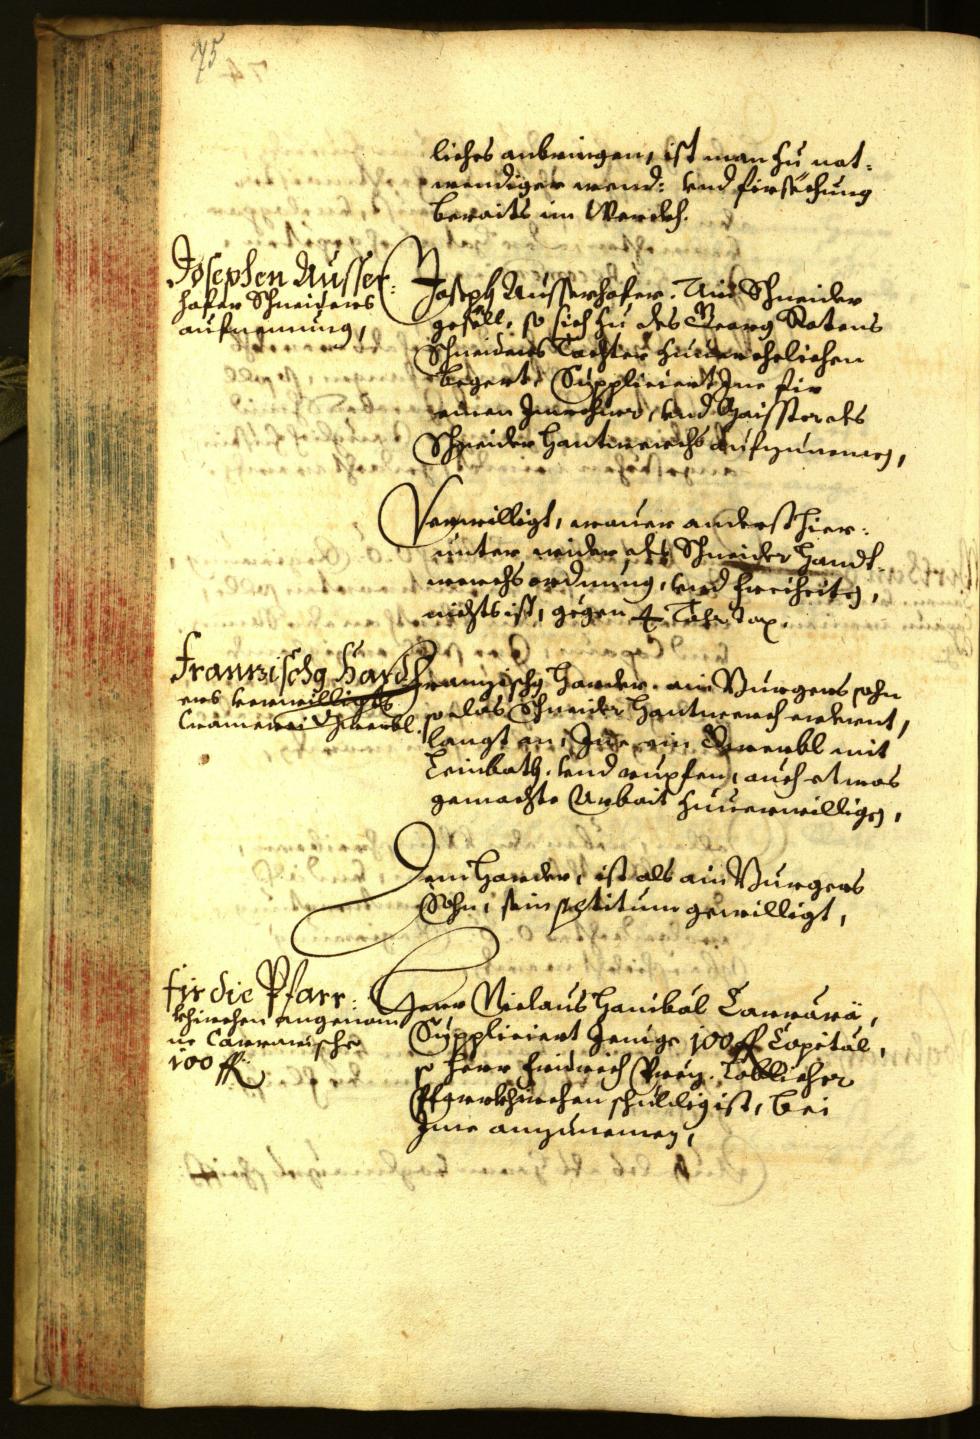 75
liches anbringen, ist man zu not-
wendiger wend: vnd fürsechung
beraits im Werckh.
Josephen Ausser-
hofer Schneiders
aufnemung,
Joseph Ausserhofer. Ain Schneider
gesöll, so sich zu des Georg Katens
Schneiders Tochter zuuerehelichen
begert, Suppliciert Ine für
einen Inwohner, vnd Maister des
Schneider Hantwerchs aufzunemen,
Verwilligt, wauer anderst hier-
unter wider des Schneider Handt-
werchs ordnung, vnd freiheiten,
nichts ist, gegen 4 Taler Tax.
Franzischg Hard-
ers verwilligts
Cramerei Gwerbl.
Franzischg Harder. ain Burgers sohn
so das Schneider Hantwerch erlernt,
langt an, Ime ein Gwerbl mit
Leinbath. vnd rupfen, auch etwas
gemachte Arbait zuuerwilligen,
Dem Harder, ist als ain Burgers
Sohn, sein petitum gewilligt,
Fir die Pfarr-
khirchen angenom-
ne Carrarische
100 fl.
Herr Niclaus Hanibal Carrara,
Suppliciert Jenige 100 fl Capital,
so Herr Fridrich Löblicher
Pfarrkhirchen schuldig ist, bei
Ime anzunemen,